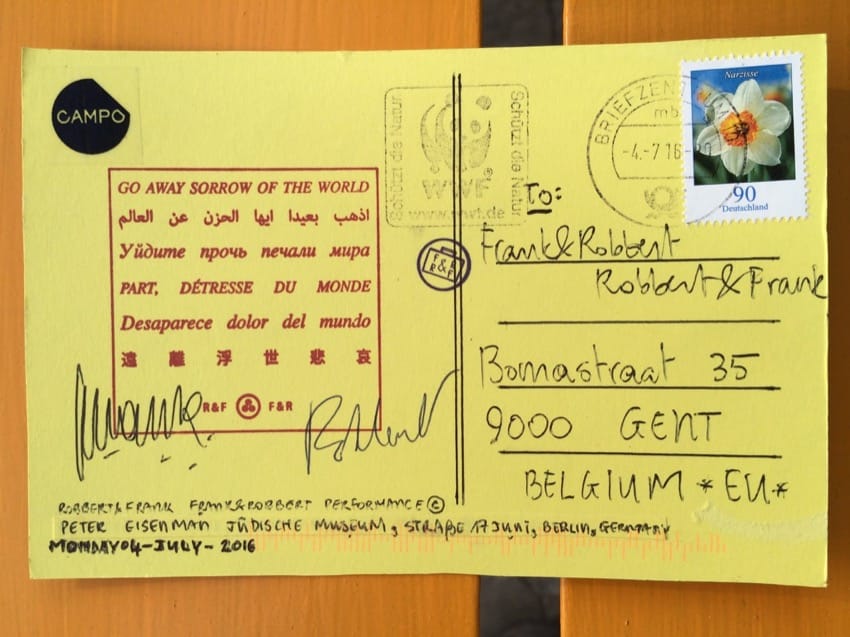 CAMPO
GO AWAY SORROW OF THE WORLD
اذهب بعيدا ايها الحزن عن العالم
Уйдите прочь печали мира
PART, DÉTRESSE DU MONDE
Desaparece dolor del mundo
遠離浮世悲哀
R&F F&R
ROBBERT&FRANK FRANK&ROBBERT PERFORMANCE ©
PETER EISENMAN JÜDISCHE MUSEUM, STRAßE 17 JUNI, BERLIN, GERMANY
MONDAY 04-JULY-2016
Schützt die Natur
WWF
www.wwf.de
Schützt die Natur
F&R
R&F
BRIEFZENTRUM
mb
-4.-7 16-20
Narzisse
90
Deutschland
To:
Frank&Robbert
Robbert&Frank
Bomastraat 35
9000 GENT
BELGIUM *EU*